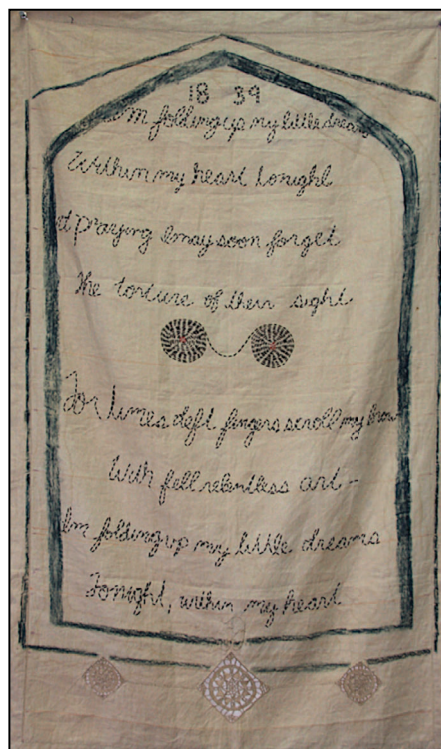 18 39
Im folding up my little dreams
Within my heart tonight
d praying I may soon forget
The torture of their sight
For times deft fingers scroll my brow
With fell relentless art –
Im folding up my little dreams
Tonight, within my heart